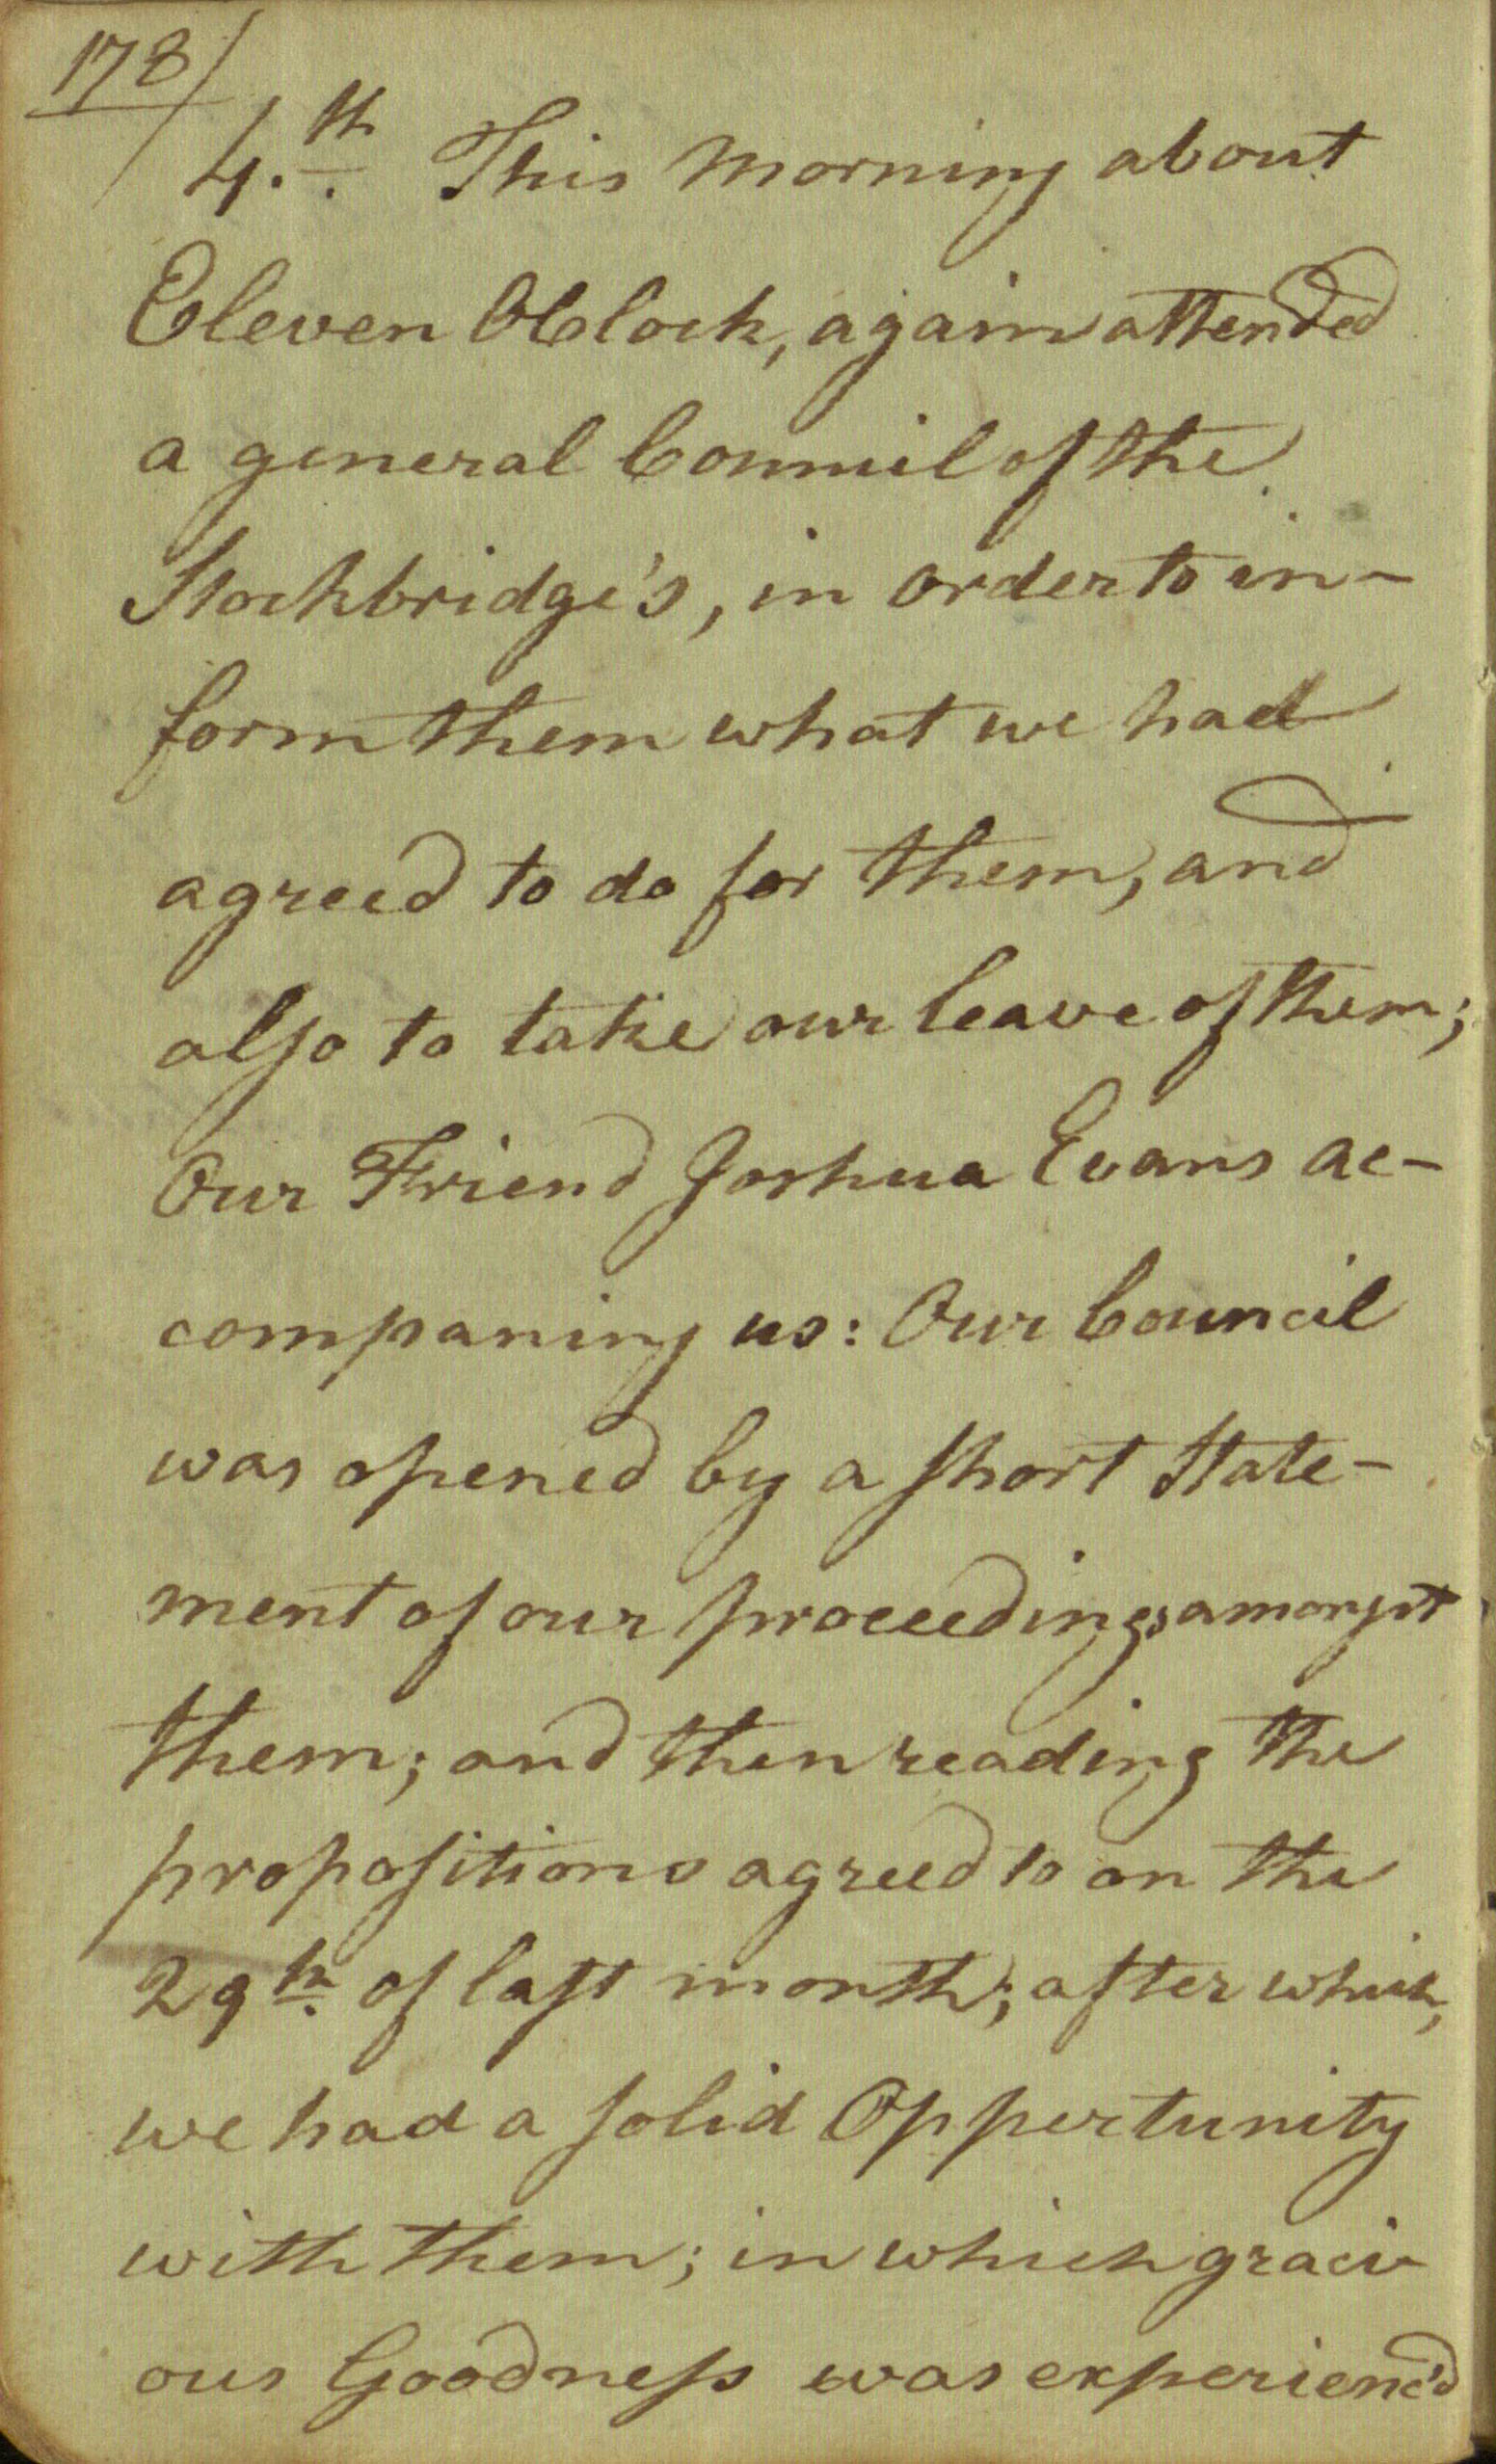 178
4.th This Morning about
Eleven OClock, again attended
a general Council of the
Stockbridge's, in Order to in-
form them what we had
agreed to do for them, and
also to take our leave of them;
Our Friend Joshua Evans ac-
companing us: Our Council
was opened by a short State-
ment of our proceedings amongst
them; and then reading the
propositions agreed to on the
29th. of last month; after which,
we had a solid Oppertunity
with them; in which graci-
ous Goodness was experienc'd